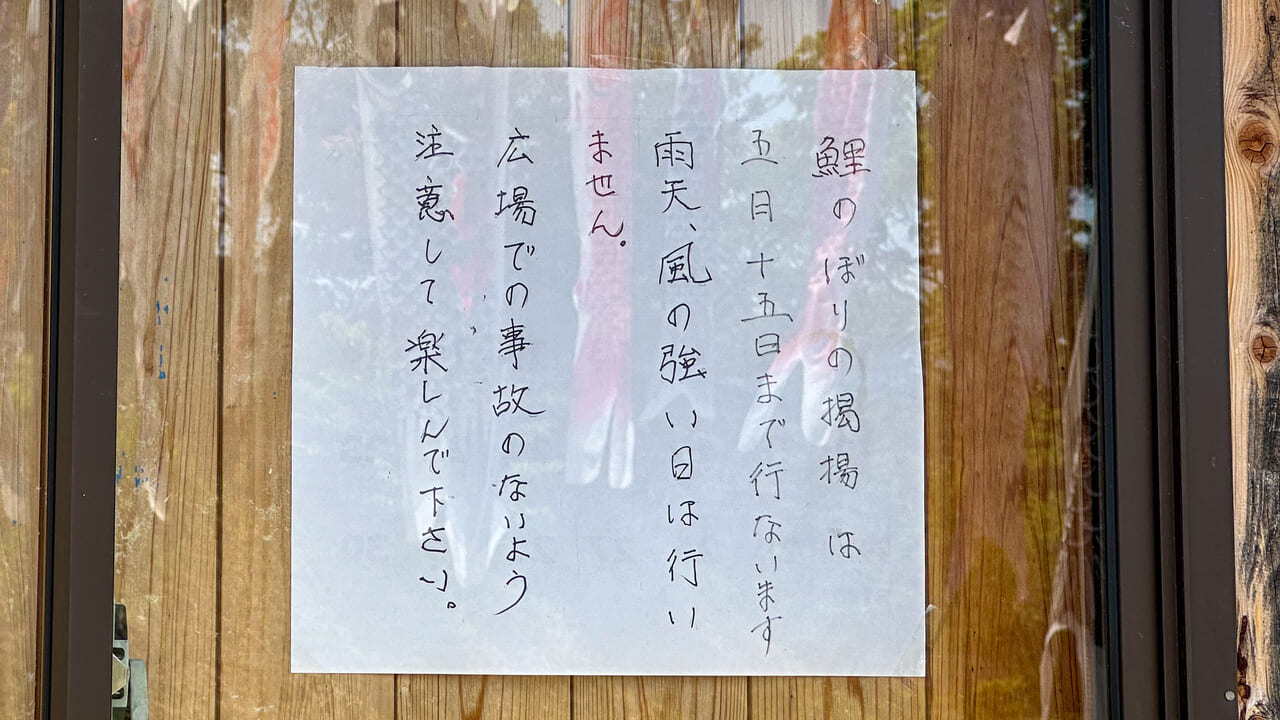 鯉のぼりの掲揚は
五日十五日まで行ないます
雨天、風の強い日は行い
ません。
広場での事故のないよう
注意して楽しんで下さい。